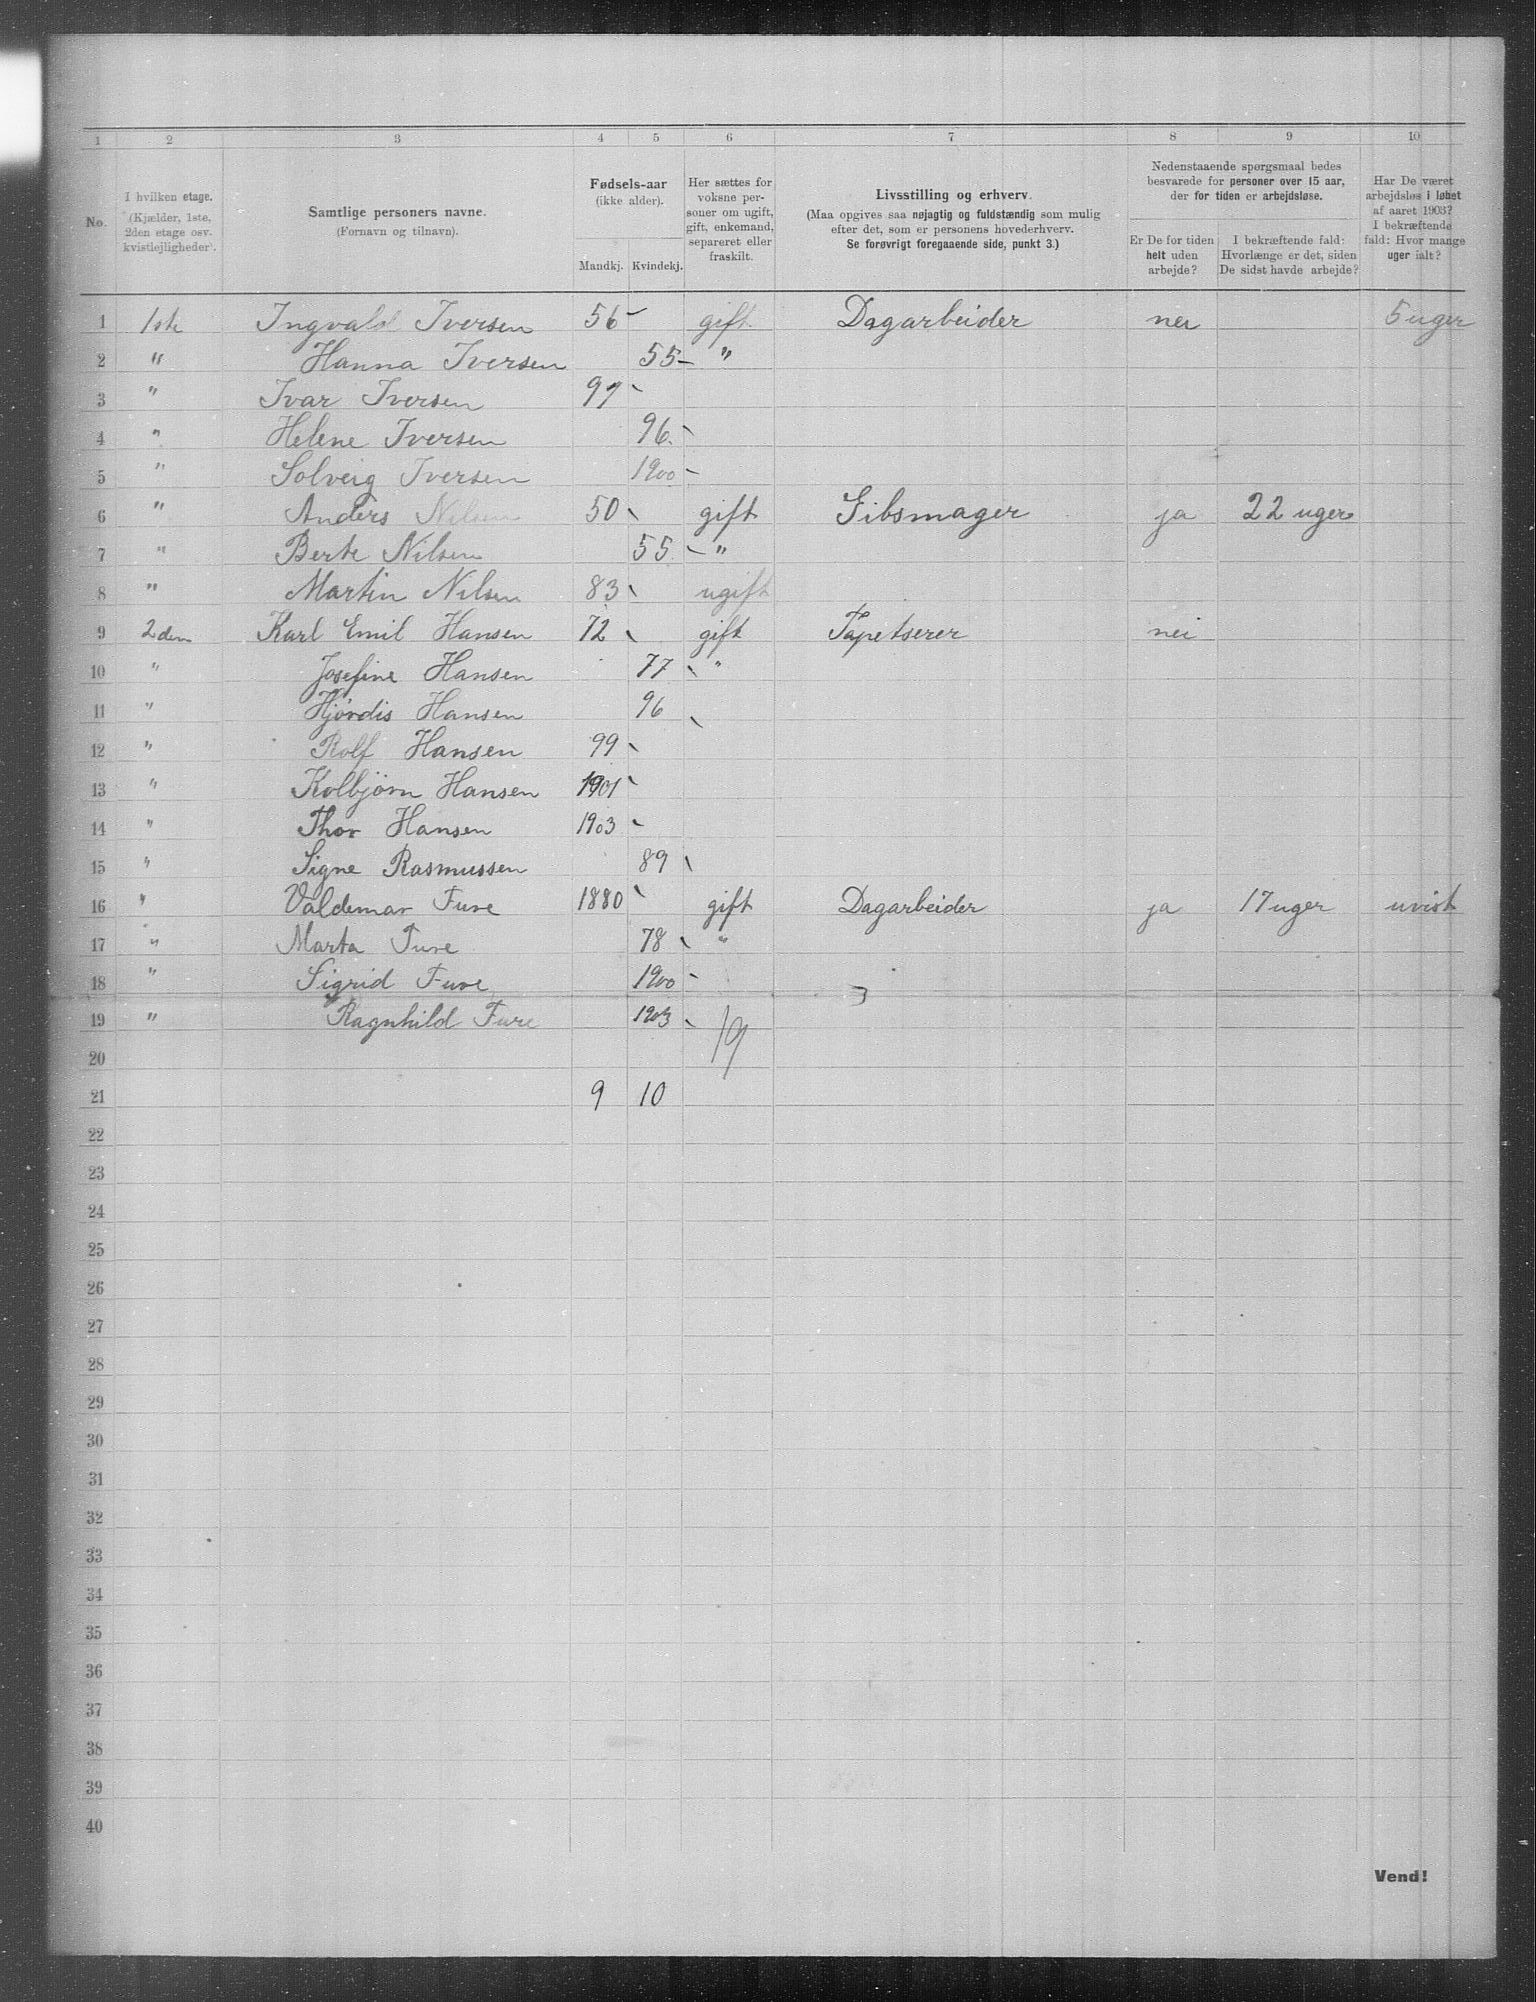 1 2 3 4 5 6 7 8 9 10
No.
I hvilken etage.
(Kjælder, 1ste,
2den etage osv.
kvistlejligheder).
Samtlige personers navne.
(Fornavn og tilnavn).
Fødsels-aar
(ikke alder).
Mandkj. Kvindekj.
Her sættes for
voksne per-
soner om ugift,
gift, enkemand,
separeret eller
fraskilt.
Livsstilling og erhverv.
(Maa opgives saa nøjagtig og fuldstændig som mulig
efter det, som er personens hovederhverv.
Se forøvrigt foregaaende side, punkt 3.)
Nedenstaaende spørgsmaal bedes
besvarede for personer over 15 aar,
der for tiden er arbejdsløse.
Er De for tiden
helt uden
arbejde?
I bekræftende fald:
Hvorlænge er det, siden
De sidst havde arbejde?
Har De været
arbejdsløs i løbet
af aaret 1903?
I bekræftende
fald: Hvor mange
uger ialt?
1 1ste Ingvald Iversen 56 gift Dagarbeider nei 5 uger
2 " Hanna Iversen 55 "
3 " Ivar Iversen 97
4 " Helene Iversen 96
5 " Solveig Iversen 1900
6 " Anders Nilsen 50 gift Gibsmager ja 22 uger
7 " Berte Nilsen 55 "
8 " Martin Nilsen 83 ugift
9 2den Karl Emil Hansen 72 gift Tapetserer nei
10 " Josefine Hansen 77 "
11 " Hjórdis Hansen 96
12 " Rolf Hansen 99
13 " Kolbjörn Hansen 1901
14 " Thor Hansen 1903
15 " Signe Rasmussen 89
16 " Valdemar Fure 1880 gift Dagarbeider ja 17 uger uvist
17 " Marta Fure 78 "
18 " Sigrid Fure 1900
19 " Ragnhild Fure 1903 19
20
21 9 10
22
23
24
25
26
27
28
29
30
31
32
33
34
35
36
37
38
39
40
Vend!